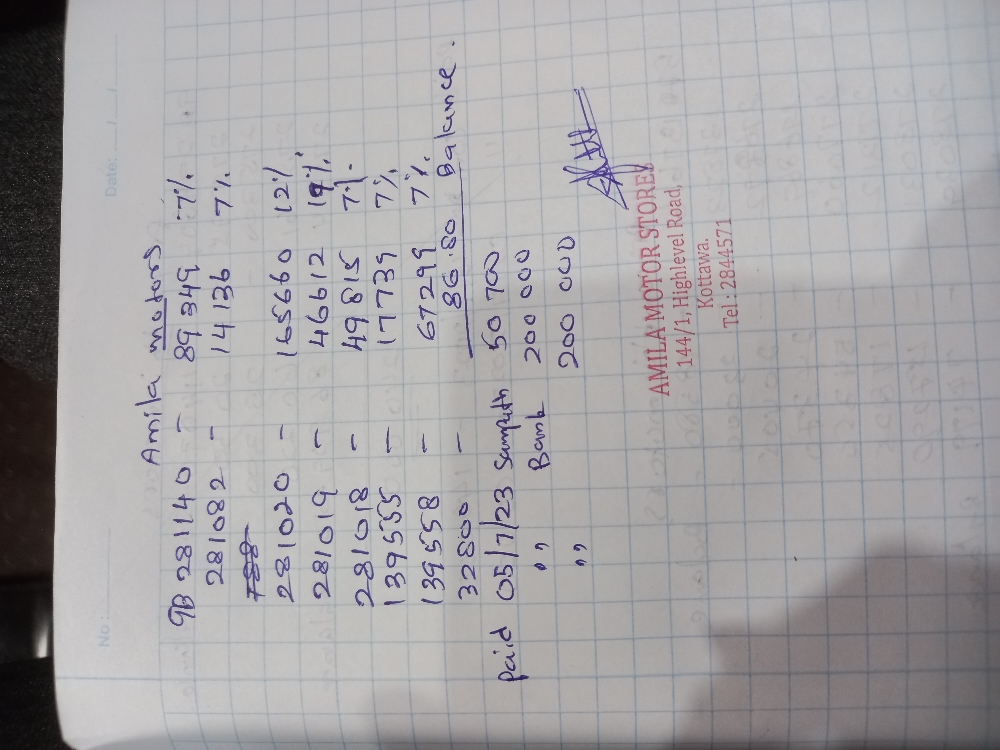 No:
Date: / /
Amila motors
GB 281140 - 89349 7%
281082 - 14136 7%
281020 - 165660 12%
281019 - 46612
281018 - 49815 7%
139555 - 17739 7%
139558 - 67299 7%
32800 - 86.80 Balance.
Paid 05/7/23 Sampath 50 700
,, Bank 200 000
,, 200 000
AMILA MOTOR STORES
144/1, Highlevel Road,
Kottawa.
Tel : 2844571